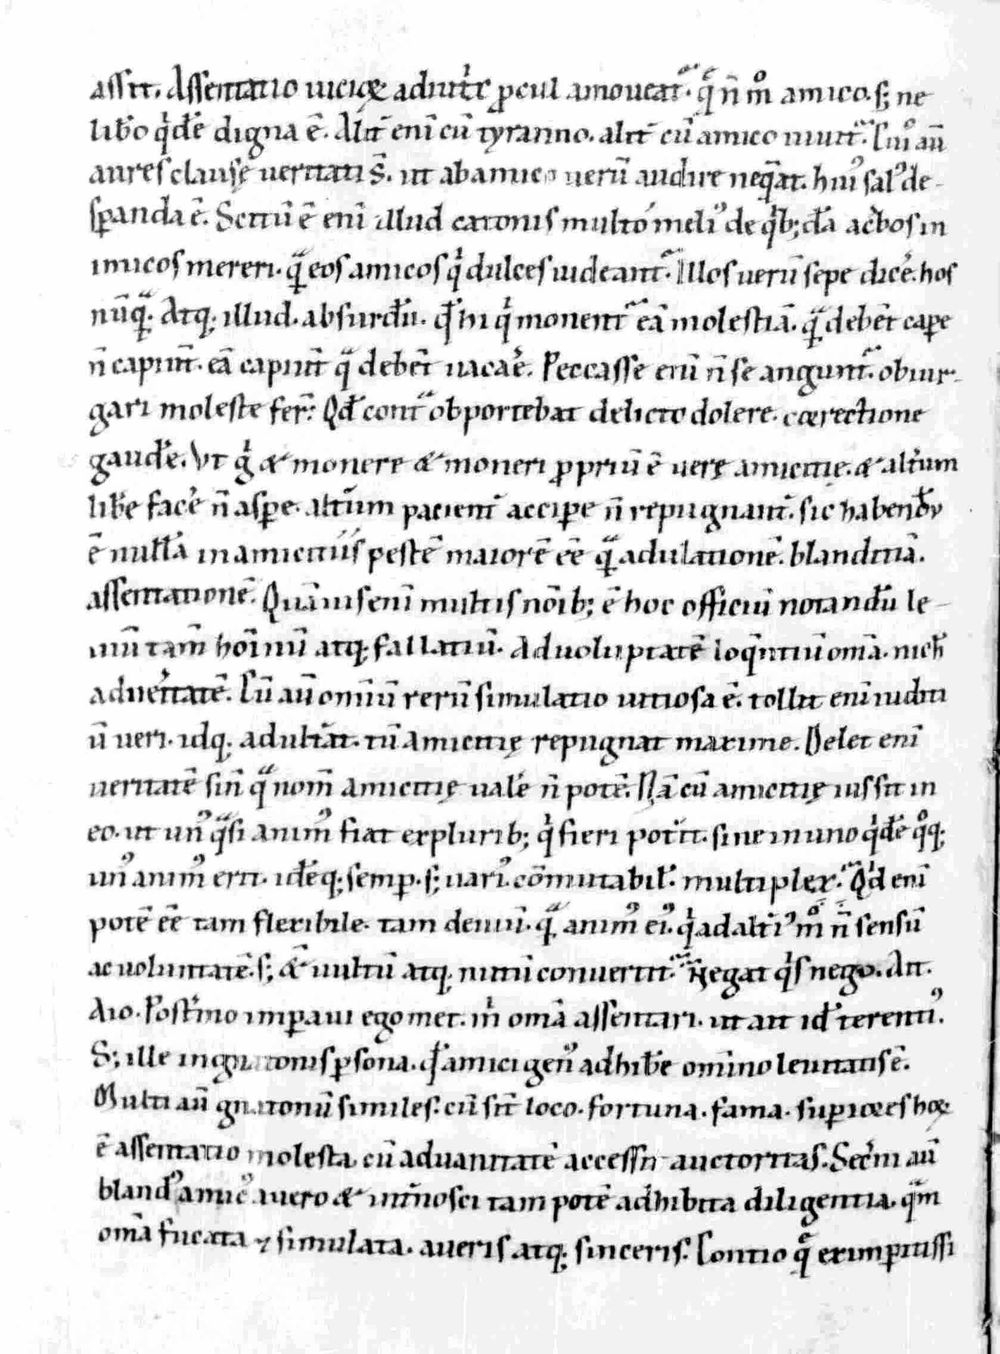 assit. Assentatio uicioꝝ adiut͛x ꝓcul amoueat᷑. q̄ n̄ m̊ amico. s; ne
lib͛o qͥdē digna ē. Alit͛ eni cū tyranno. alit͛ cū amico uiuit᷑. Cuiꝰ aū
aures clausę ueritati s̄. ut ab amico uerū audire neq̄at. huiꝰ salꝰ de-
sꝑanda ē. Scitū ē eni illud catonis multo meliꝰ de qͥb; dā ac͛bos in
imicos mereri. q̄ꝫ eos amicos qͥ dulces uideant᷑. Illos uerū sepe dic͛e. hos
nūq̄ꝫ. Atq; illud. absurdū. qđ hi qͥ monent᷑ eā molestiā. q̄ꝫ debent caꝑe
n̄ capiūt. eā capiūt q̄ debent uaca͛e. Peccasse eni n̄ se angunt. obiur-
gari moleste fer͛t. Qđ cont͛ oportebat delicto dolere. correctione
gaud͛e. Vt g̊ & monere & moneri ꝓpriū ē uerę amicitie. & alt͛um
lib͛e fac͛e n̄ asꝑe. alt͛um pacient͛ acciꝑe n̄ repugnant͛. sic habendū
ē nullā in amicitiis pestē maiorē eē q̄ꝫ adulationē. blanditiā.
assentationē. Quāuis eni multis nōib; ē hoc officiū notandū le-
uiū tam̄ hoīnū atq; fallatiū. Ad uoluptatē loq̄ntiū omā. nich̄
ad u͛itatē. Cū aū omiū rerū simulatio uitiosa ē. tollit eni iuditi
ū ueri. idq; adult͛at. tū amicitię repugnat maxime. Delet eni
ueritatē sin̄ q̄ nom̄ amicitię ual͛e n̄ potē. Nā cū amicitię uis sit in
eo. ut unꝰ q̄si animꝰ fiat ex plurib; qͥ fieri pot͛it. si ne in uno qͥdē q̊q;
unꝰ animꝰ erit. idēq; semꝑ. s; uariꝰ cōmutabil͛. multiplex. Qͥd eni
potē eē tam flexibile. tam deuiū. q̄ꝫ animꝰ eiꝰ. qͥ ad alt͛iꝰ m̊ n̄ sensū
ac uoluntatē. s; & uultū atq; nutū conuertit᷑. Negat qͥs nego. Ait.
Aio. Post͛mo imꝑaui egomet. mͥ omā assentari. ut ait idē terentiꝰ.
S; ille in gnatonis ꝑsona. qđ amici genꝰ adhib͛e omīno leuitatis ē.
Multi aū gnatonū similes. cū sīt loco. fortuna. fama. suꝑiores hoꝝ
ē assentatio molesta. cū ad uanitatē accessit auctoritas. Sec͛ni aū
blandꝰ amicꝰ a uero & int͛nosci tam potē adhibita diligentia. q̄m
omā fucata ⁊ simulata. a ueris atq; sinceris. Contio q̄ ex imꝑitissi